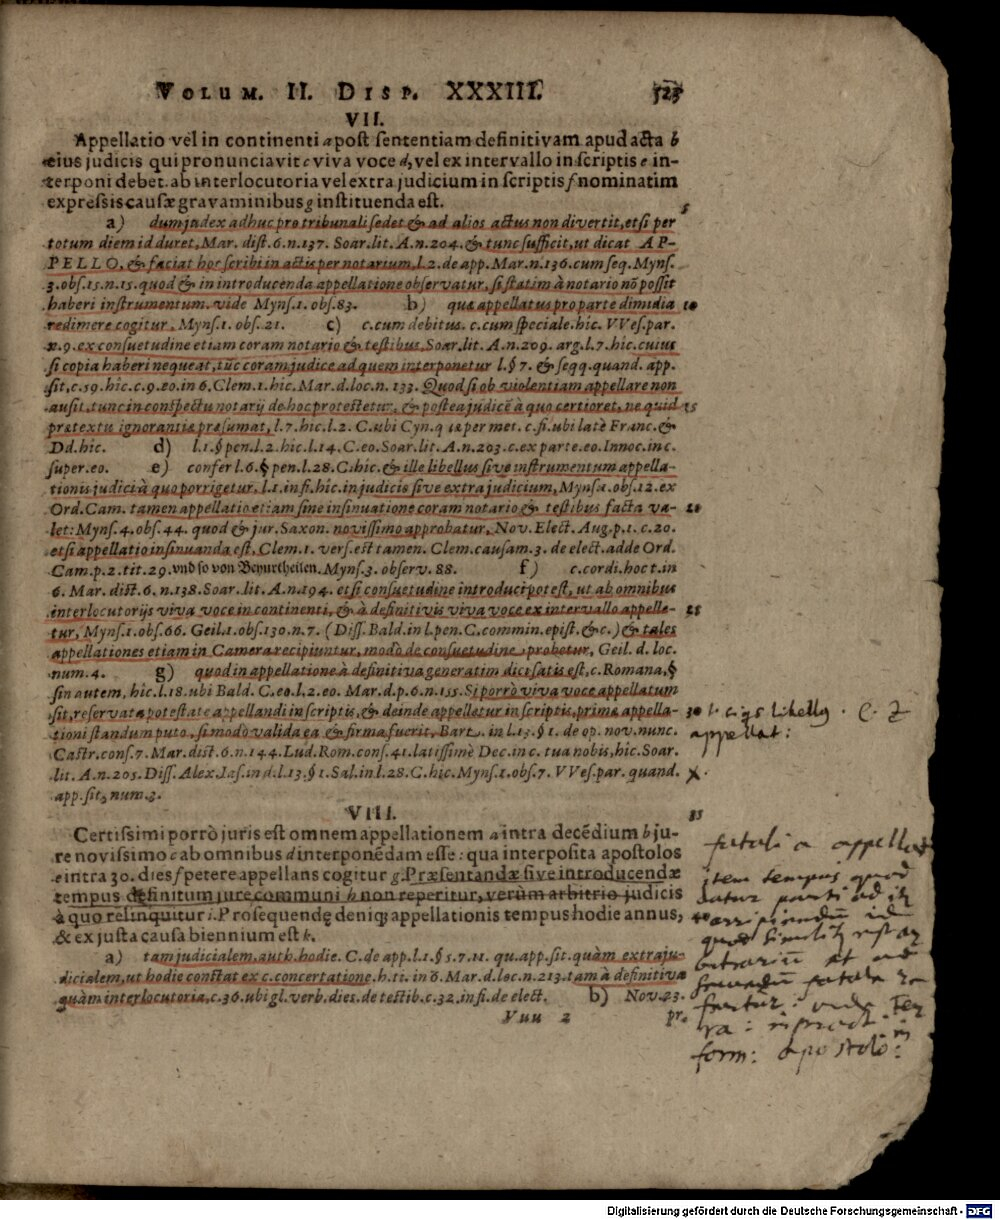 VOLUM. II. DISP. XXXIII. 523
VII.
Appellatio vel in continenti a post sententiam definitivam apud acta b
eius judicis qui pronunciavit c viva voce d, vel ex intervallo in scriptis e in-
terponi debet. ab interlocutoria vel extra judicium in scriptis f nominatim
expressis causæ gravaminibus g instituenda est.
5
a) dum judex adhuc pro tribunali sedet & ad alios actus non divertit, etsi per
totum diem id duret, Mar. dist. 6. n. 137. Soar. lit. A. n. 204. & tunc sufficit, ut dicat AP-
PELLO, & faciat hoc scribi in actis per notarium, l. 2. de app. Mar. n. 136. cum seq. Myns.
3. obs. 15. n. 15. quod & in introducenda appellatione observatur, si statim à notario nō possit
haberi instrumentum. vide Myns. 1. obs. 83. b) quæ appellatus pro parte dimidia 10
redimere cogitur, Myns. 1. obs. 21. c) c. cum debitus. c. cum speciale. hic. VVes. par.
n. 9. ex consuetudine etiam coram notario & testibus, Soar. lit. A. n. 209. arg. l. 7. hic. cuius
si copia haberi nequeat, tūc coram judice ad quem interponetur l. § 7. & seqq. quand. app.
sit, c. 59. hîc. c. 9. eo. in 6. Clem. 1. hic. Mar. d. loc. n. 133. Quod si ob violentiam appellare non
ausit, tunc in conspectu notarij de hoc protestetur, & postea judicē à quo certioret, ne quid 15
prætextu ignorantiæ præsumat, l. 7. hic. l. 2. C. ubi Cyn. q 18 per met. c. fi. ubi latè Franc. &
Dd. hic. d) l. 1. § pen. l. 2. hic. l. 14. C. eo. Soar. lit. A. n. 203. c. ex parte. eo. Innoc. in c.
super. eo. e) confer l. 6. § pen. l. 28. C. hic. & ille libellus sive instrumentum appella-
tionis judici à quo porrigetur, l. 1. in fi. hîc. in judicis sive extra judicium, Myns. 2. obs. 12. ex
Ord. Cam. tamen appellatio etiam sine insinuatione coram notario & testibus facta va- 20
let: Myns. 4. obs. 44. quod & jur. Saxon. novissimo approbatur, Nov. Elect. Aug. p. 1. c. 20.
etsi appellatio insinuanda est, Clem. 1. vers. est tamen. Clem. causam. 3. de elect. adde Ord.
Cam. p. 2. tit. 29. vnd so von Beyurtheilen. Myns. 3. observ. 88. f) c. cordi. hoc t. in
6. Mar. dist. 6. n. 138. Soar. lit. A. n. 194. etsi consuetudine introduci potest, ut ab omnibus
interlocutorijs viva voce in continenti, & à definitivis viva voce ex intervallo appelle- 25
tur, Myns. 1. obs. 66. Geil. 1. obs. 130. n. 7. (Diss. Bald. in l. pen. C. commin. epist. &c.) & tales
appellationes etiam in Camera recipiuntur, modò de consuetudine probetur, Geil. d. loc.
num. 4. g) quod in appellatione à definitiva generatim dict satis est, c. Romana, §
sin autem, hic. l. 18. ubi Bald. C. eo. l. 2. eo. Mar. d. p. 6. n. 155. Si porrò viva voce appellatum
sit, reservata potestate appellandi in scriptis, & deinde appelletur in scriptis, primæ appella- 30
tioni standum puto, si modò valida ea & firma fuerit, Bart. in l. 13. § 1. de op. nov. nunc.
Castr. cons. 7. Mar. dist. 6. n. 144. Lud. Rom. cons. 41. latissimè Dec. in c. tua nobis, hic. Soar.
lit. A. n. 205. Diss. Alex. Jas. in d. l. 13. § 1. Sal. in l. 28. C. hic. Myns. 1. obs. 7. VVes. par. quand.
app. sit, num. 3.
VIII. 35
Certissimi porrò juris est omnem appellationem a intra decēdium b ju-
re novissimo c ab omnibus d interponēdam esse: qua interposita apostolos
e intra 30. dies f petere appellans cogitur g. Præsentandæ sive introducendæ
tempus definitum jure communi h non reperitur, verùm arbitrio judicis
à quo relinquitur i. Prosequendę deniq; appellationis tempus hodie annus, 40
& ex justa causa biennium est k.
a) tam judicialem, auth. hodie. C. de app. l. 1. § 5. 7. 11. qu. app. sit. quàm extraju-
dicialem, ut hodie constat ex c. concertatione. h. ti. in 6. Mar. d. loc. n. 213. tam à definitiva
quàm interlocutoria, c. 36. ubi gl. verb. dies. de testib. c. 32. in fi. de elect. b) Nov. 23.
Vuu 2 pr.
appellat:
fatali a appell
item tempus quod
datur parti ad
form: apostolo: